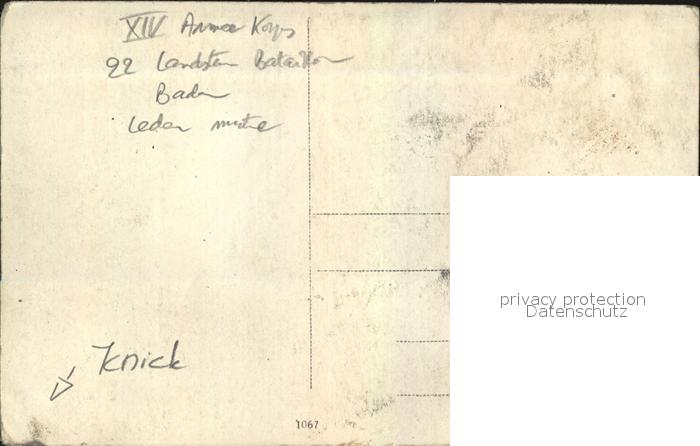 XIV Armee Korps
22 Landsturm Bataillon
Baden
Leder mütze
Knick
1067
privacy protection
Datenschutz